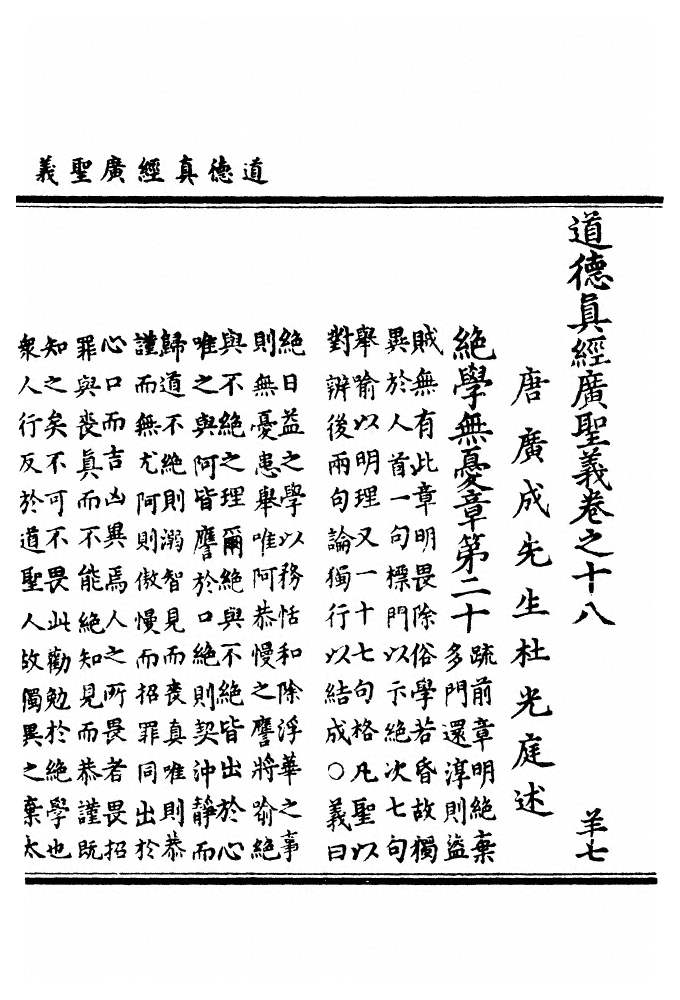 道德真經廣聖義
道德眞經廣聖義卷之十八　羊七
唐廣成先生杜光庭述
絕學無憂章第二十
疏前章明絕棄
多門還淳則盜
賊無有此章明畏除俗學若昏故獨
異於人首一句標門以示絕次七句
舉喻以明理又一十七句格凡聖以
對辨後兩句論獨行以結成○義曰
絕日益之學以務恬和除浮華之事
則無憂患舉唯阿恭慢之譍將喻絕
與不絕之理爾絕與不絕皆出於心
唯之與阿皆譍於口絕則契沖靜而
歸道不絕則溺智見而喪真唯則恭
謹而無尤阿則傲慢而招罪同出於
心口而吉凶異焉人之所畏者畏招
罪與喪眞而不能絕知見而恭謹既
知之矣不可不畏此勸勉於絕學也
衆人行反於道聖人故獨異之棄太